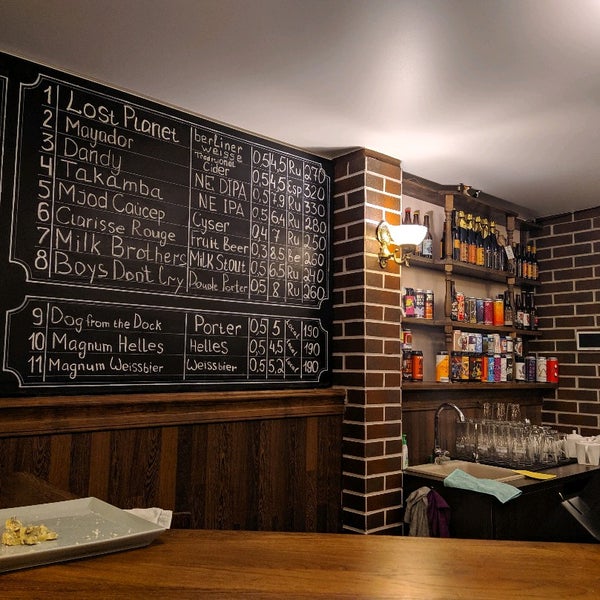 1 Lost Planet berliner weisse 0,5 4,5 Ru 270
2 Mayador Traditional Cider 0,5 4,5 Esp 320
3 Dandy NE DIPA 0,5 7,9 Ru 330
4 Takamba NE IPA 0,5 6,4 Ru 280
5 Mjod Cayсер Cyser 0,4 7 Ru 250
6 Clarisse Rouge Fruit Beer 0,3 8,5 Be 260
7 Milk Brothers Milk Stout 0,5 6,5 Ru 240
8 Boys Dont Cry Double Porter 0,5 8 Ru 260
9 Dog from the Dock Porter 0,5 5 190
10 Magnum Helles Helles 0,5 4,5 190
11 Magnum Weissbier Weissbier 0,5 5,2 190